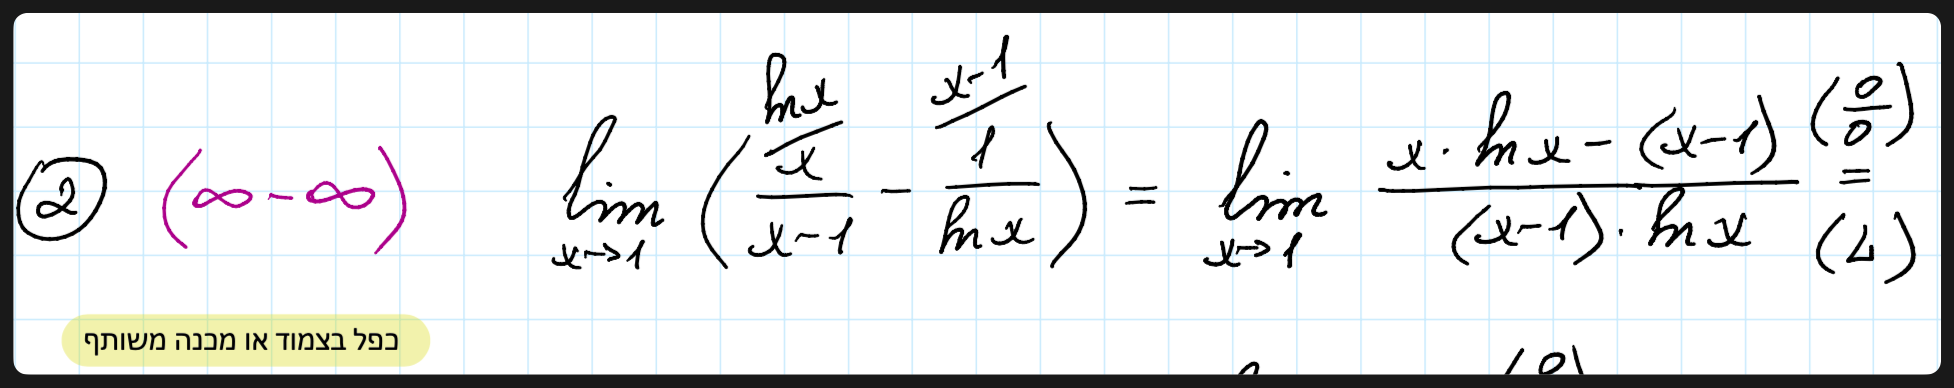 ② (∞-∞) lim x→1 ( x/(x-1) ^(ln x) - 1/(ln x) ^(x-1) ) = lim x→1 (x · ln x - (x-1)) / ((x-1) · ln x) (0/0) = (L)
כפל בצמוד או מכנה משותף